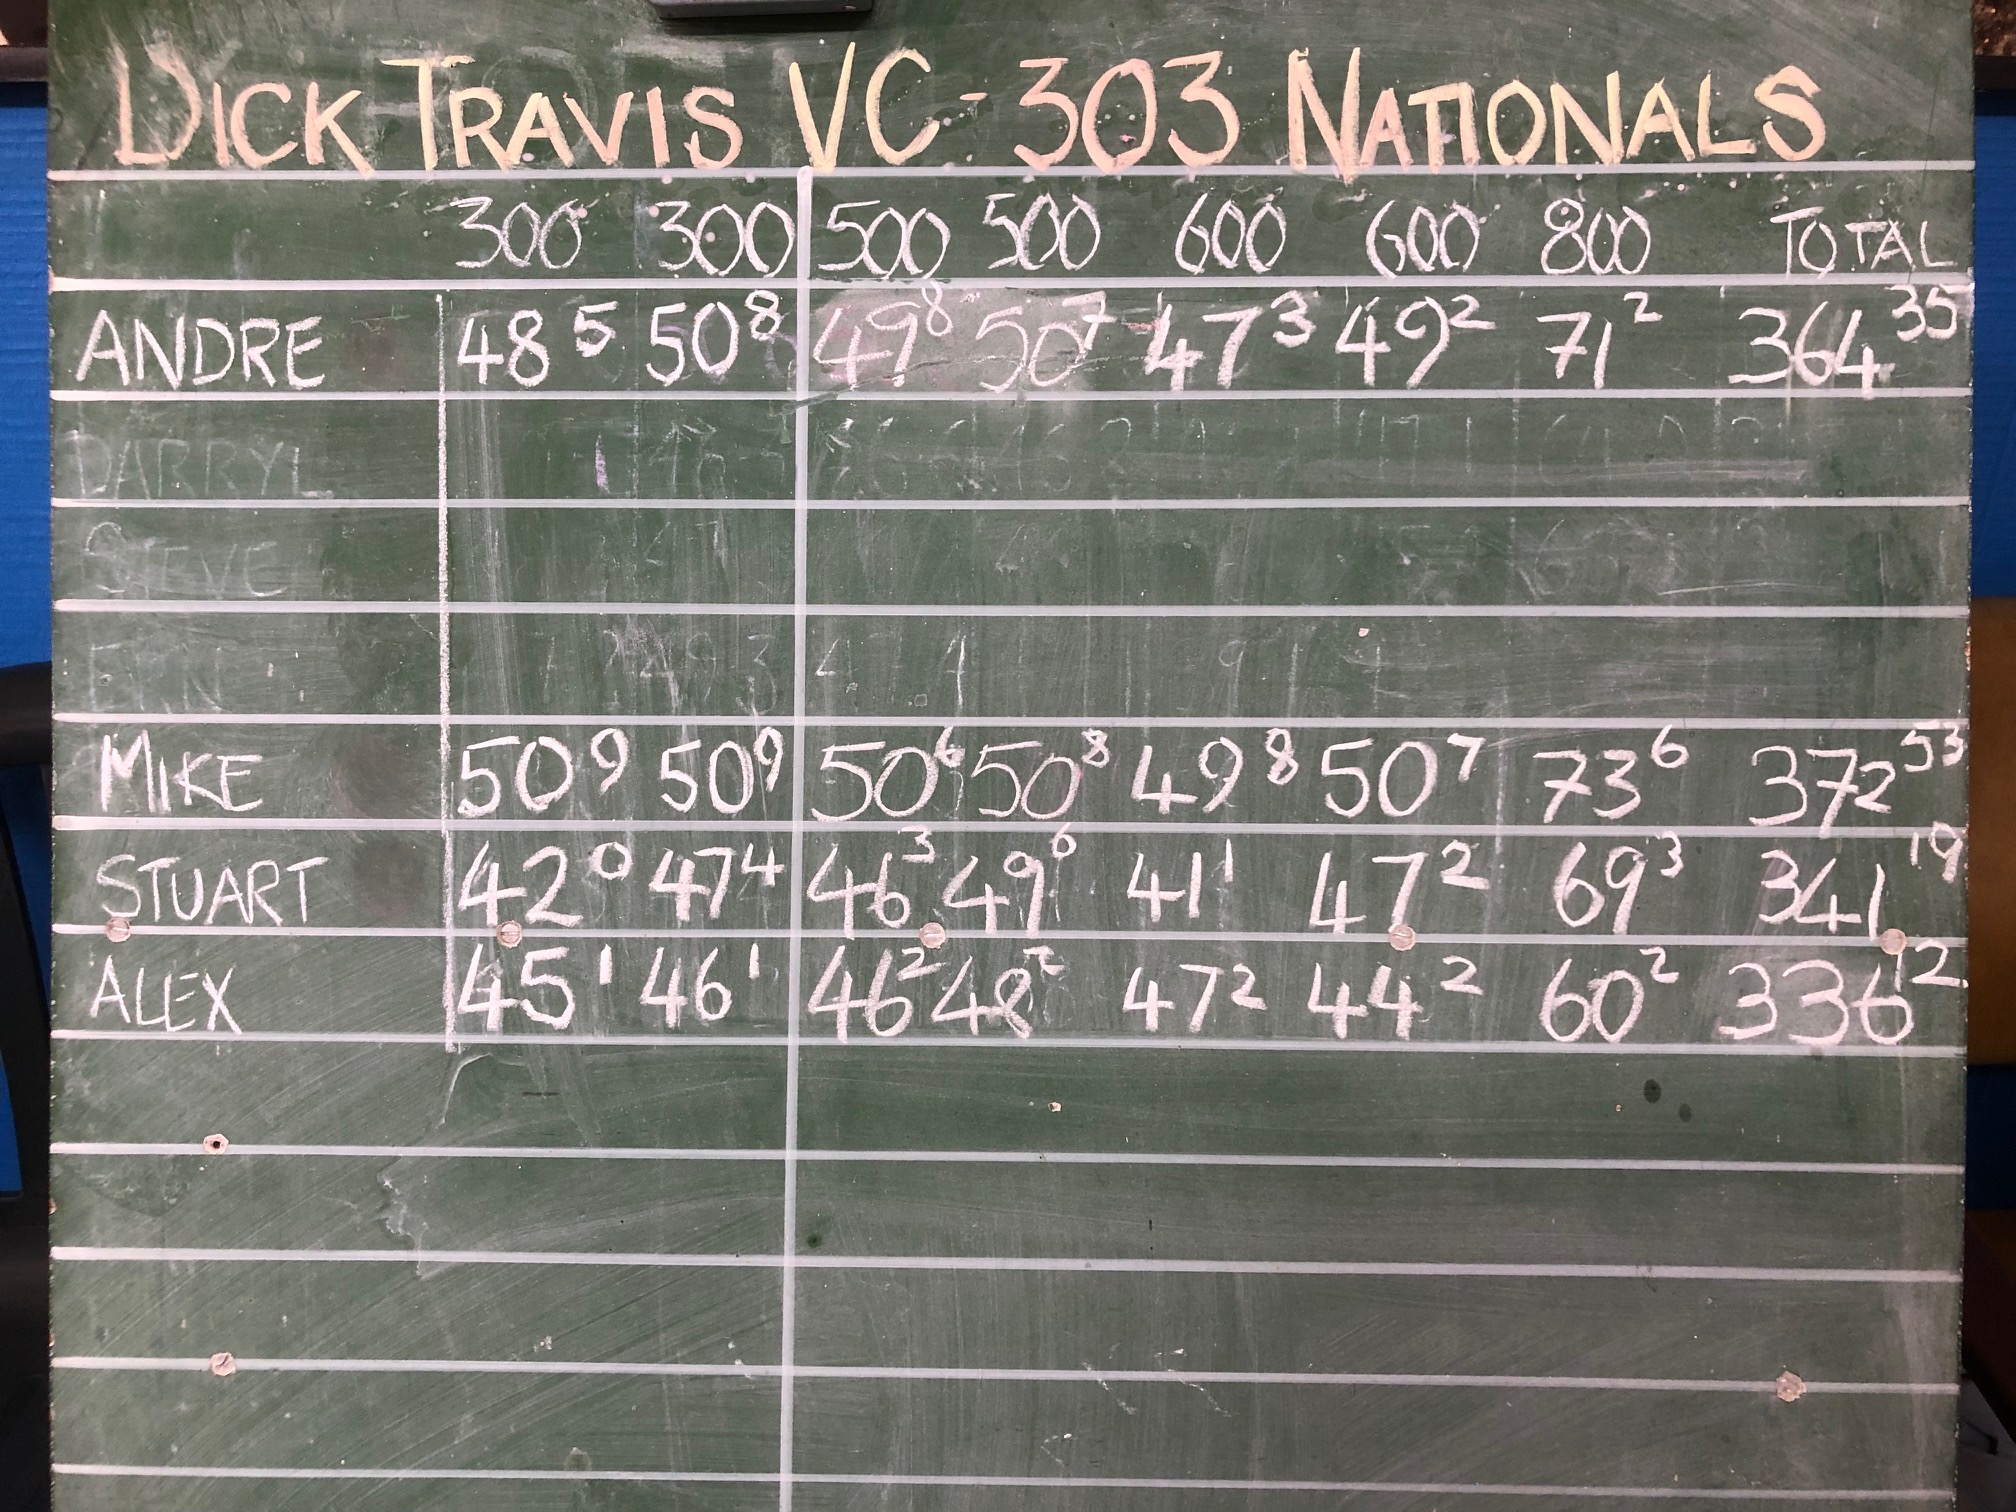 DICK TRAVIS VC-303 NATIONALS
300 300 500 500 600 600 800 TOTAL
ANDRE 48 5 50 8 49 8 50 7 47 3 49 2 71 2 364 35
DARRYL
STEVE
MIKE 50 9 50 9 50 6 50 8 49 8 50 7 73 6 372 53
STUART 42 0 47 4 46 3 49 6 41 1 47 2 69 3 341 19
ALEX 45 1 46 1 46 2 48 2 47 2 44 2 60 2 336 12